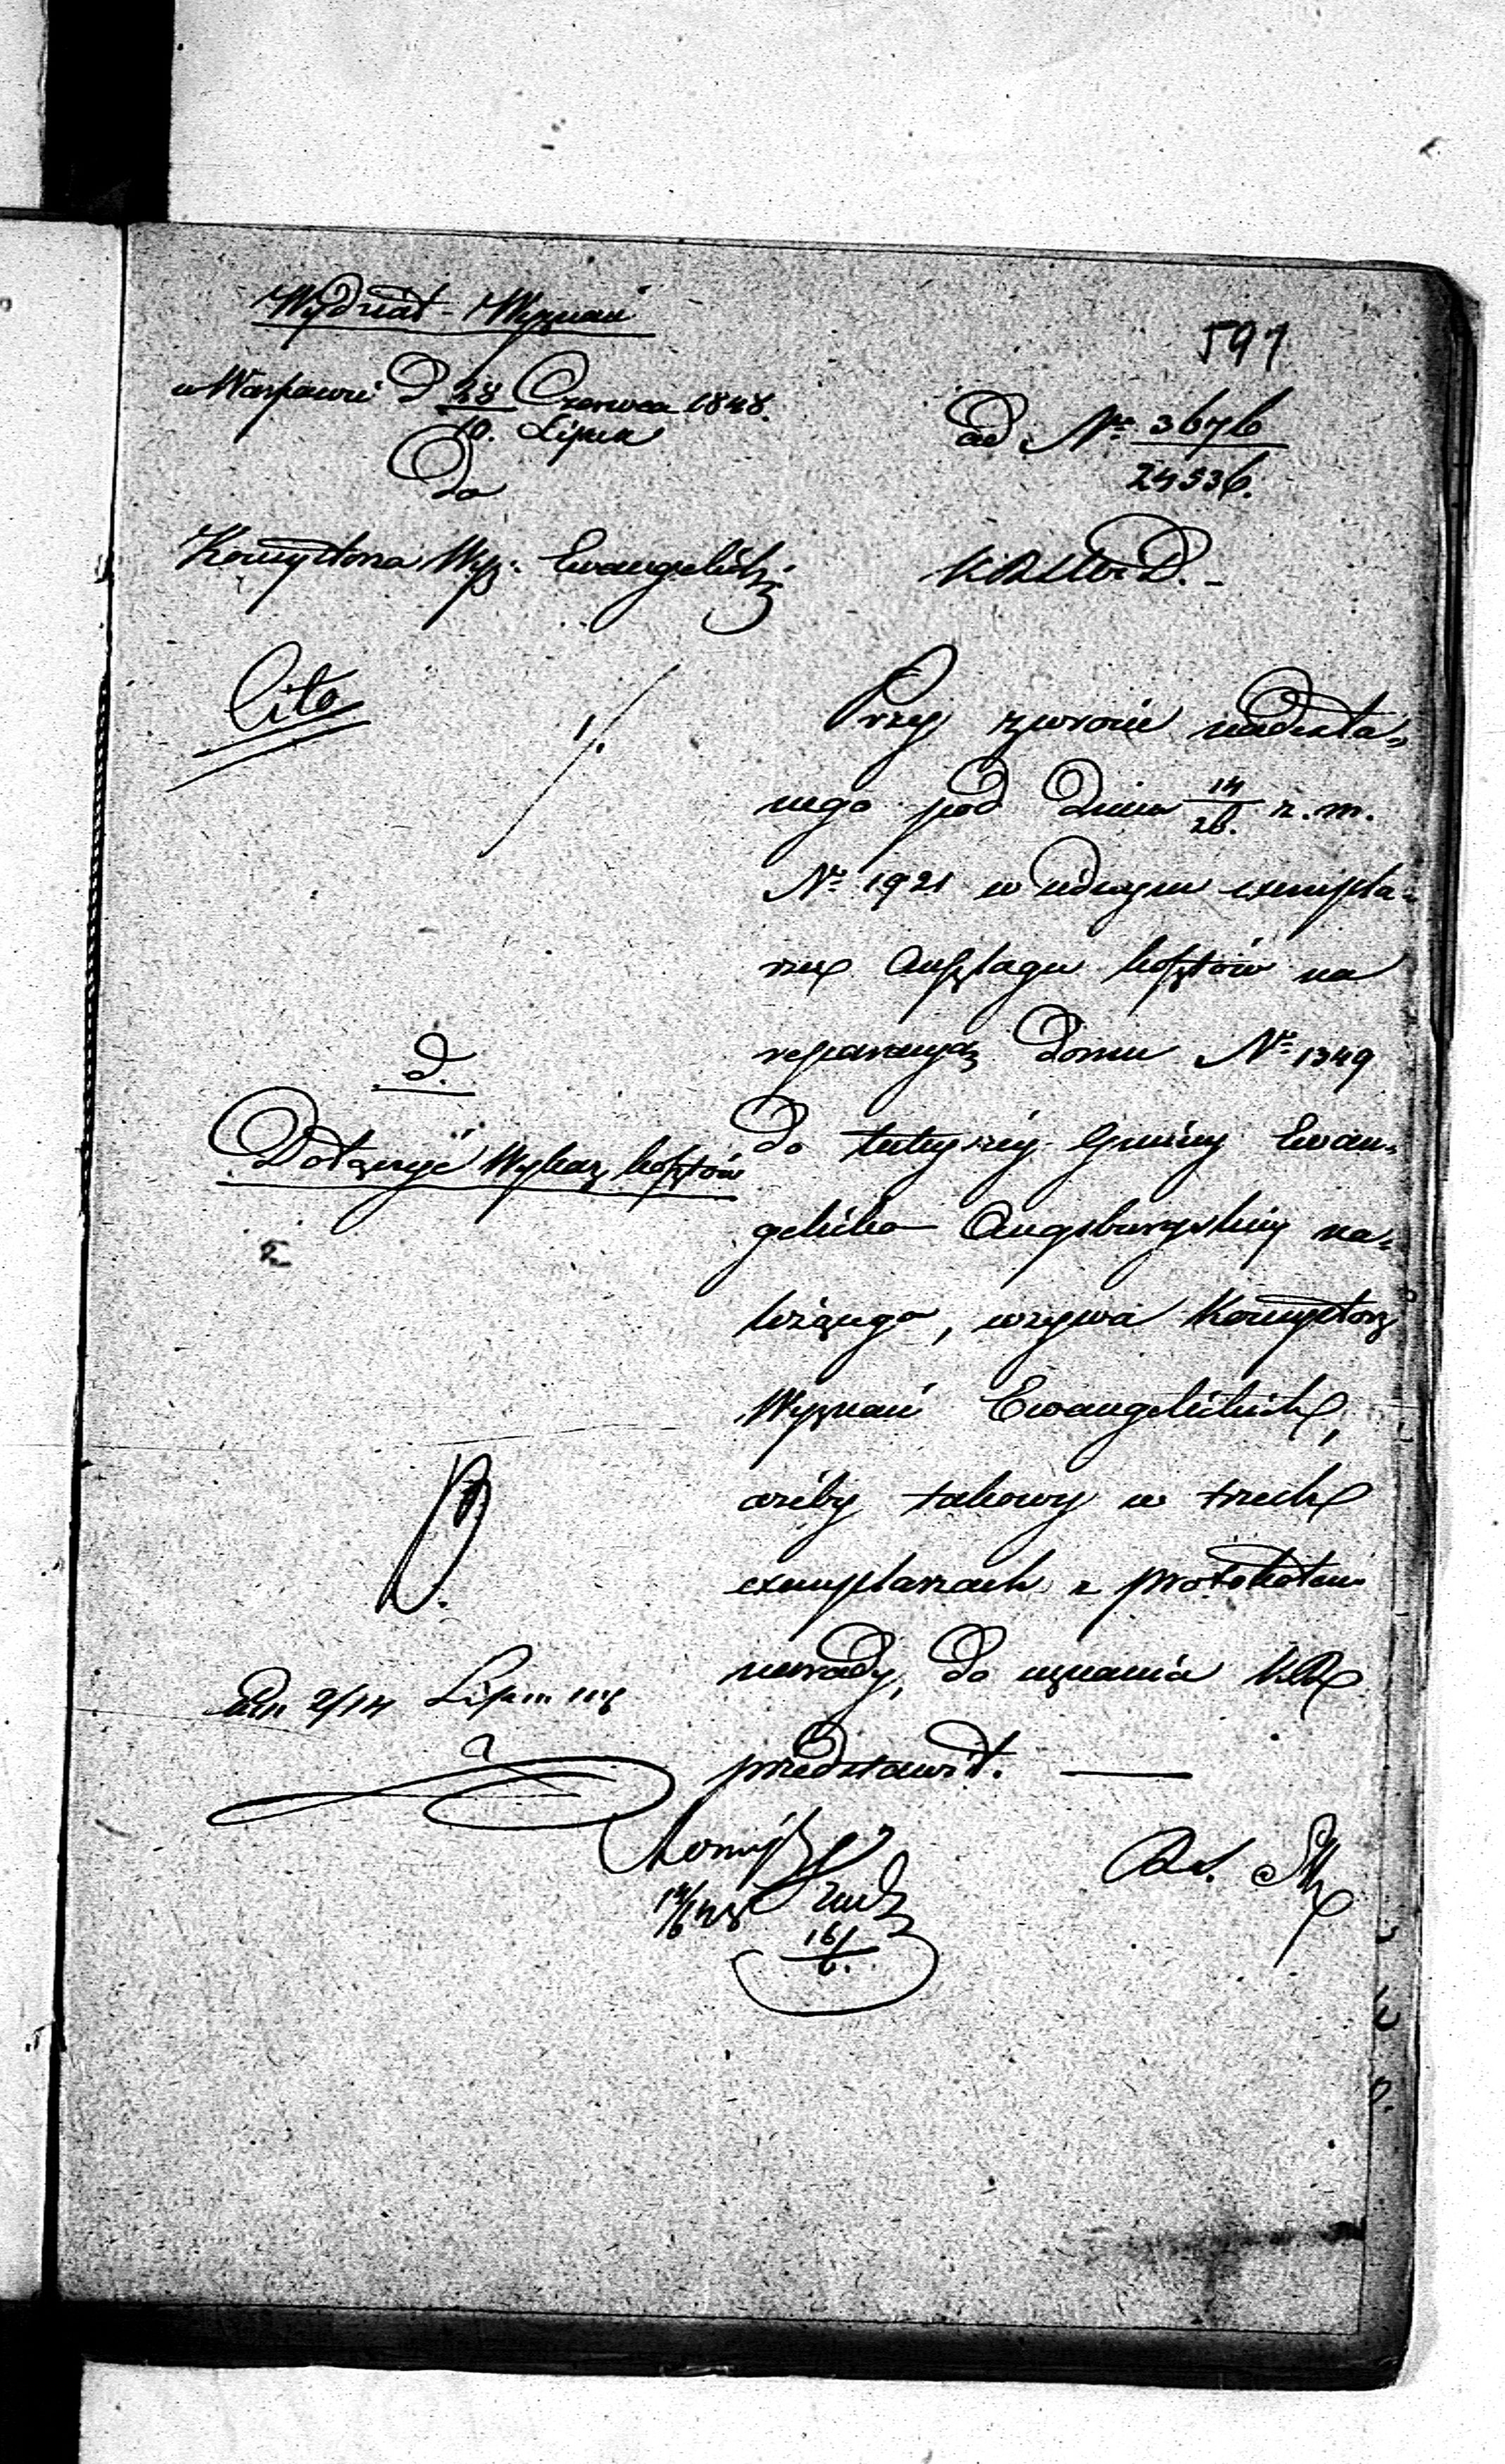 Wydział Wyznań
591
w Warszawie D 28 Czerwca 1848.
10. Lipca
ad Nro 3676
24536.
Do
Konsystorza Wyz: Ewangelickich
K.R.S.W. i D.
Cito
Przy zwrocie nadesła-
nego pod dniem 14/26. z. m.
No 1921 w jednym exempla-
rzu Anszlagu kosztów na
reparacyą domu No 1349
do tutejszéj Gminy Ewan-
gelicko Augsburgskiéj na-
leżącego, wzywa Konsystorz
Wyznań Ewangelickich,
ażeby takowy w trzech
exemplarzach z protokółem
narady, do uznania K.R.
przedstawił.
d.
Dołączyć Wykaz kosztów
2/14 Lipca
16/6.